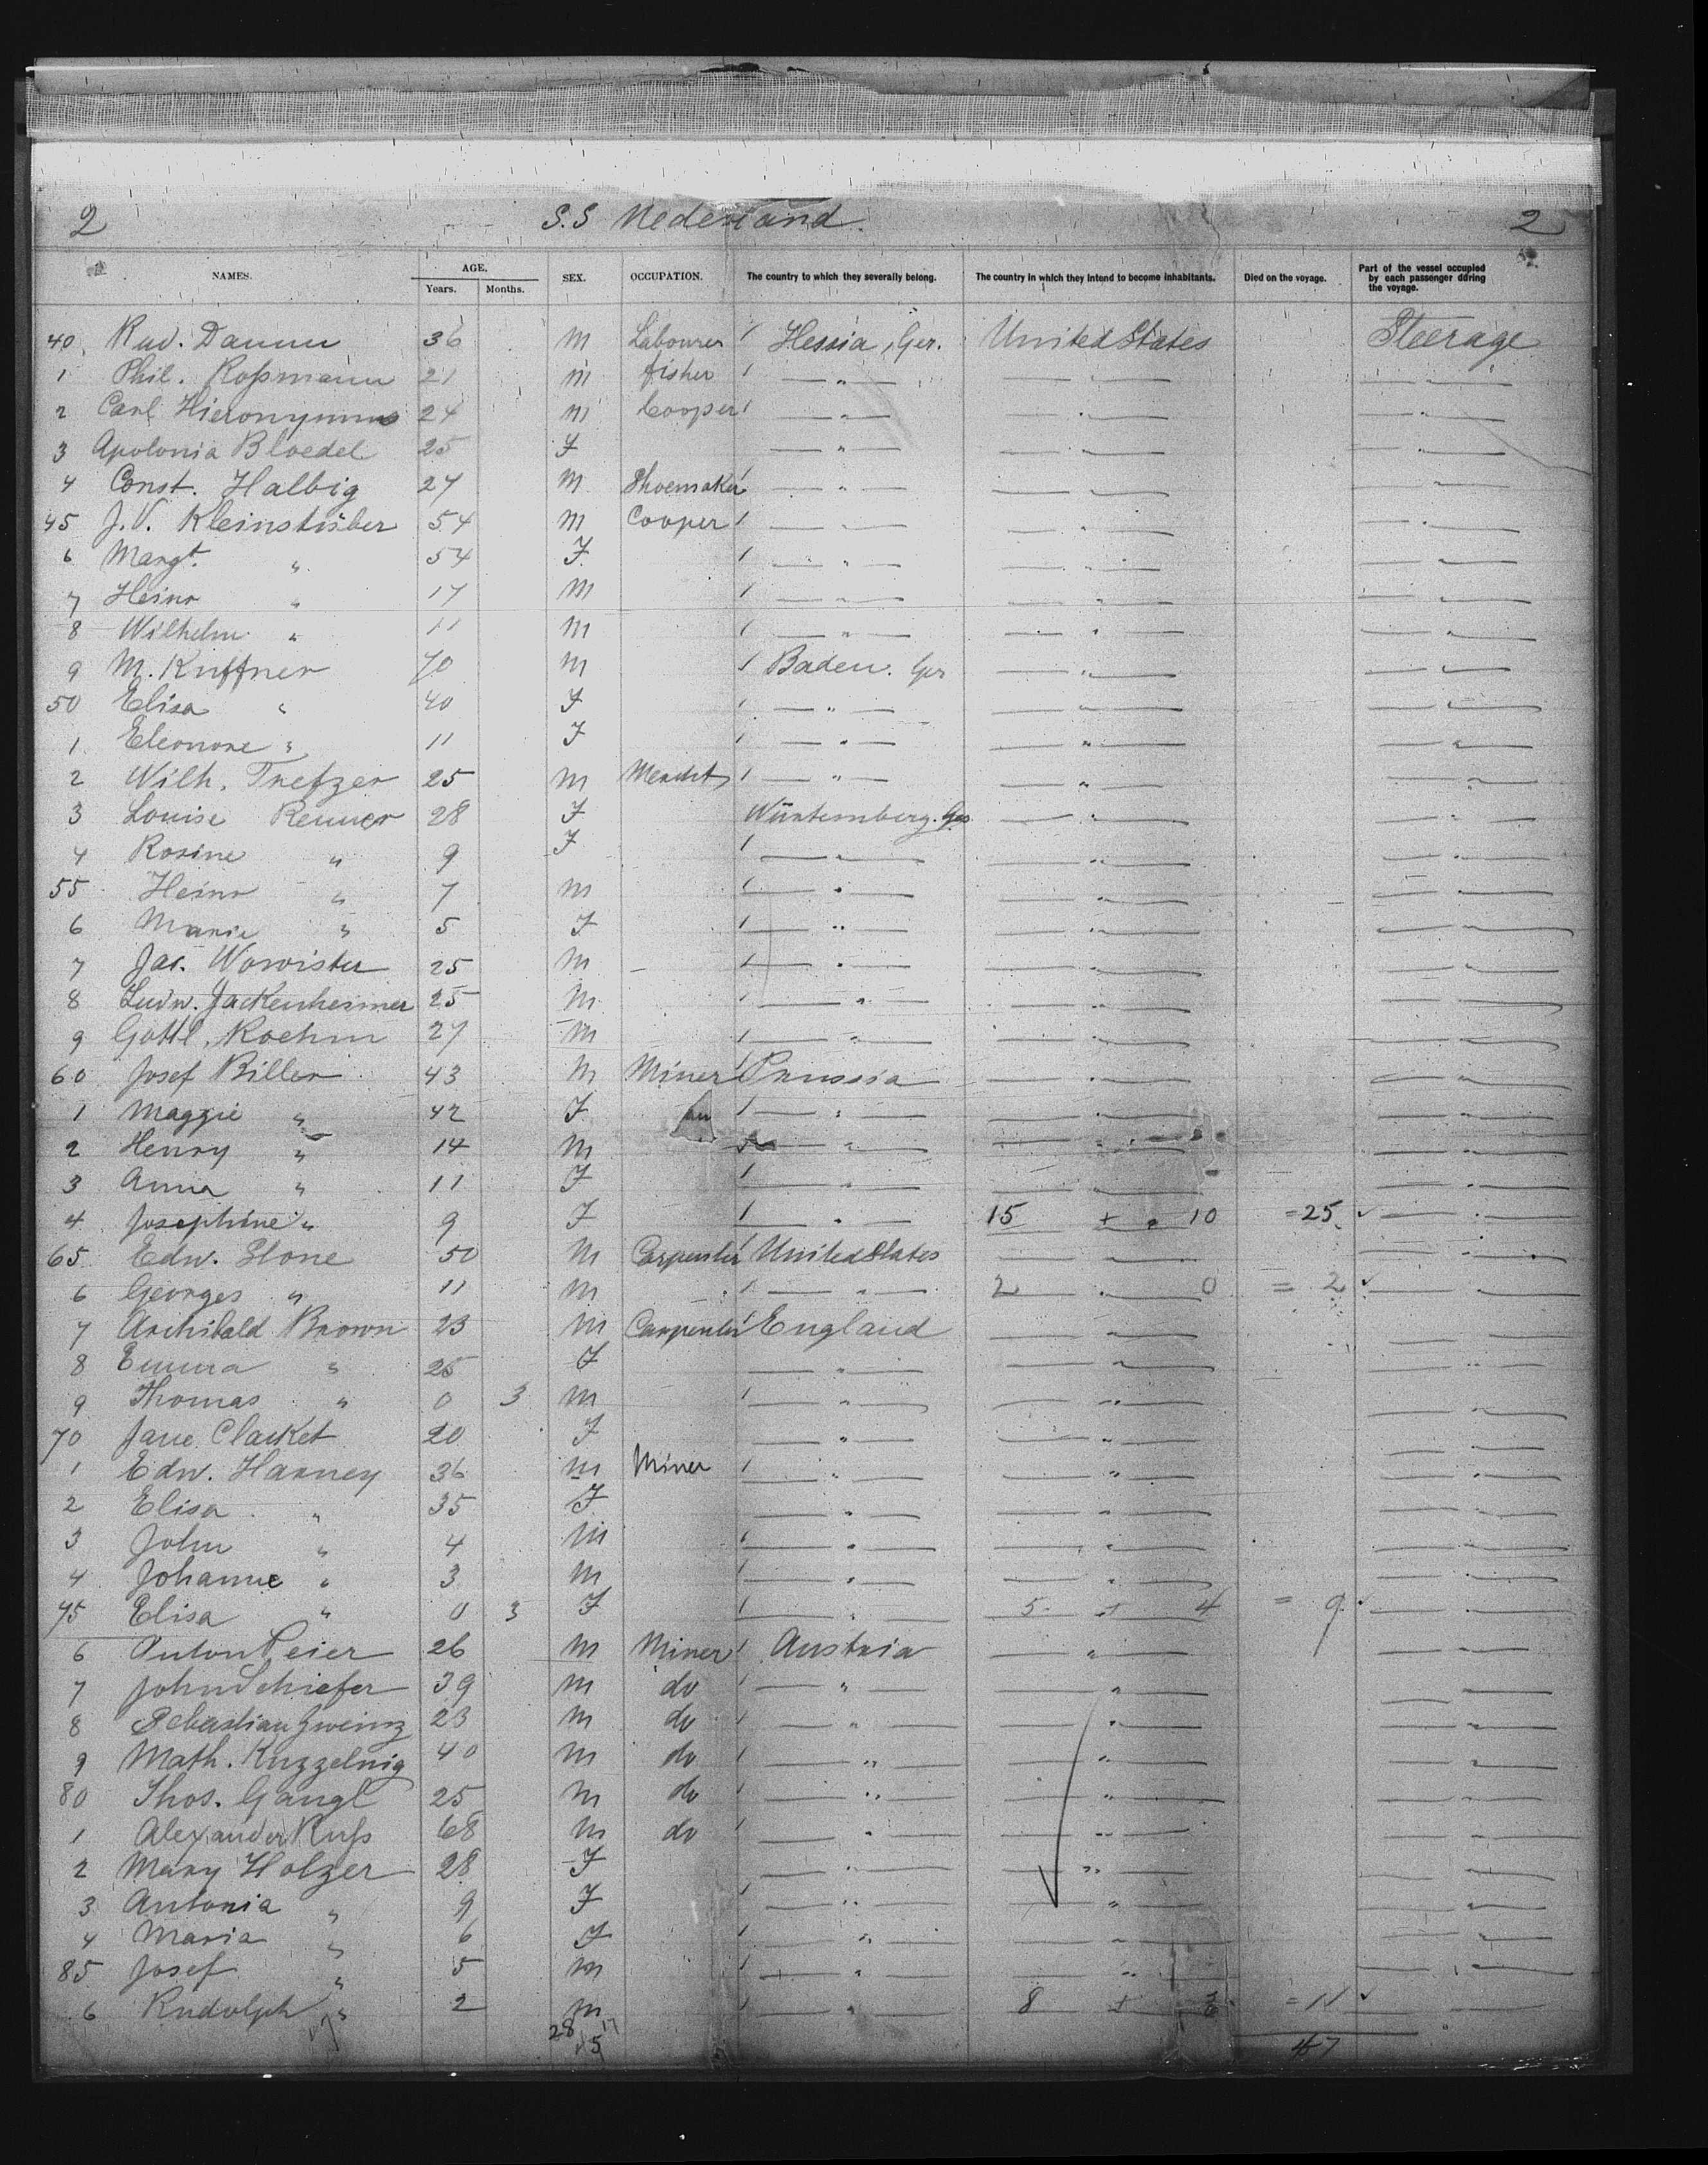 2 S.S Nederland. 2
NAMES. AGE. Years. Months. SEX. OCCUPATION. The country to which they severally belong. The country in which they intend to become inhabitants. Died on the voyage. Part of the vessel occupied by each passenger during the voyage.
40 Rud. Damm 36 M Labourer / Hessia, Ger. United States Steerage
1 Phil. Roßmann 21 m fisher / — " — — " — — " —
2 Carl Hieronymus 24 m Cooper / — " — — " — — " —
3 Apolonia Bloedel 25 F — " — — " — — " —
4 Const. Halbig 27 M Shoemaker / — " — — " — — " —
45 J.V. Kleinstüber 54 m Cooper / — " — — " — — " —
6 Margt. " 54 F / — " — — " — — " —
7 Heinr " 17 M / — " — — " — — " —
8 Wilhelm " 11 M / — " — — " — — " —
9 M. Kuffner 70 M / Baden. Ger — " — — " —
50 Elisa " 40 F / — " — — " — — " —
1 Eleonore " 11 F / — " — — " — — " —
2 Wilh. Trefzer 25 M Mercht / — " — — " — — " —
3 Louise Renner 28 F Würtemberg. Ger — " — — " —
4 Rosine " 9 F / — " — — " — — " —
55 Heinr " 7 M / — " — — " — — " —
6 Marie " 5 F / — " — — " — — " —
7 Jac. 25 M — / — " — — " — — " —
8 Ludw. Jackenheimer 25 M / — " — — " — — " —
9 Gottl. Roehm 27 M / — " — — " — — " —
60 Josef Biller 43 M Miner / Prussia — " — — " —
1 Maggie " 42 F / — " — — " — — " —
2 Henry " 14 M — " — — " — — " —
3 Anna " 11 F / — " — — " — — " —
4 Josephine " 9 F / — " — 15 + " 10 =25 ✓ — " —
65 Edw. Stone 50 M Carpenter / United States — " — — " —
6 Georges " 11 M / — " — 2 " 0 = 2 ✓ — " —
7 Archibald Brown 23 M Carpenter / England — " — — " —
8 Emma " 25 F — " — — " — — " —
9 Thomas " 0 3 M / — " — — " — — " —
70 Jane Clacket 20 F — " — — " — — " —
1 Edw. Harney 36 m Miner / — " — — " — — " —
2 Elisa " 35 F — " — — " — — " —
3 John " 4 M / — " — — " — — " —
4 Johanne " 3 M / — " — — " — — " —
75 Elisa " 0 3 F / — " — 5 + 4 = 9 — " —
6 Anton Peier 26 M Miner / Austria — " — — " —
7 John Schiefer 39 M do / — " — — " — — " —
8 Sebastian Zweinz 23 M do / — " — — " — — " —
9 Math. Kuzzelnig 40 M do / — " — — " — — " —
80 Thos. Gangl 25 M do / — " — — " — — " —
1 Alexander Ruß 68 M do / — " — — " — — " —
2 Mary Holzer 28 F — " — — " — — " —
3 Antonia " 9 F / — " — — " — — " —
4 Maria " 6 F / — " — — " — — " —
85 Josef " 5 M / — " — — " — — " —
6 Rudolph " 2 M / — " — 8 + =11 ✓
17 28 17 47